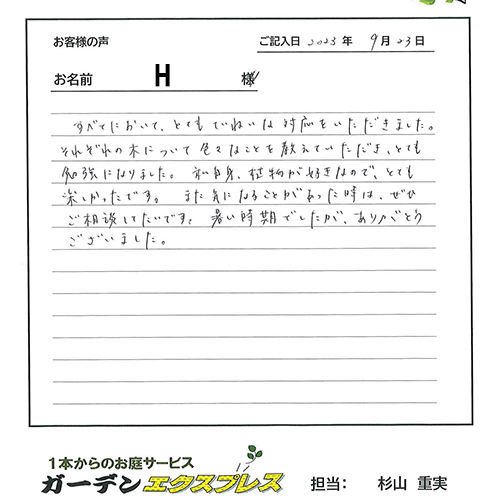 お客様の声 ご記入日 2023年 9月23日
お名前 H 様
すべてにおいて、とてもていねいな対応をいただきました。
それぞれの木について色々なことを教えていただき、とても
勉強になりました。 私自身、植物が好きなので、とても
楽しかったです。 また気になることがあった時は、ぜひ
ご相談したいです。 暑い時期でしたが、ありがとう
ございました。
1本からのお庭サービス
ガーデンエクスプレス 担当: 杉山 重実